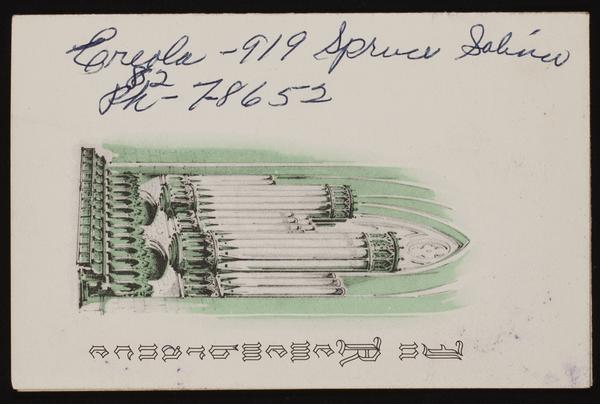 Creola - 919 Spruce Sabina
82
Ph - 7-8652
In Remembrance